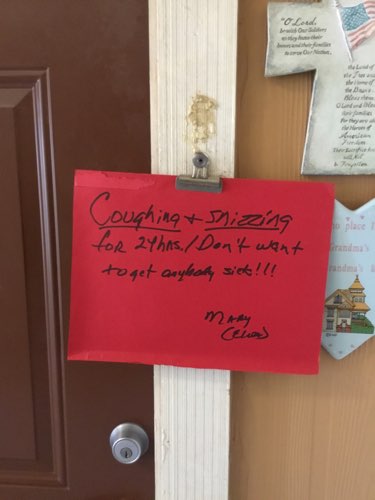 Coughing + Snizzing
for 24hrs./Don't want
to get anybody sick!!!
Mary
"O Lord,
be with Our Soldiers
as they leave their
homes and their families
to serve Our Nation."
the Lord of
the Free and
the Home of
the Brave
Bless them
O Lord and Bless
their families
For they are
the Heroes of
American
Freedom
Their sacrifice
will Not
be Forgotten
no place
Grandma's
Grandma's